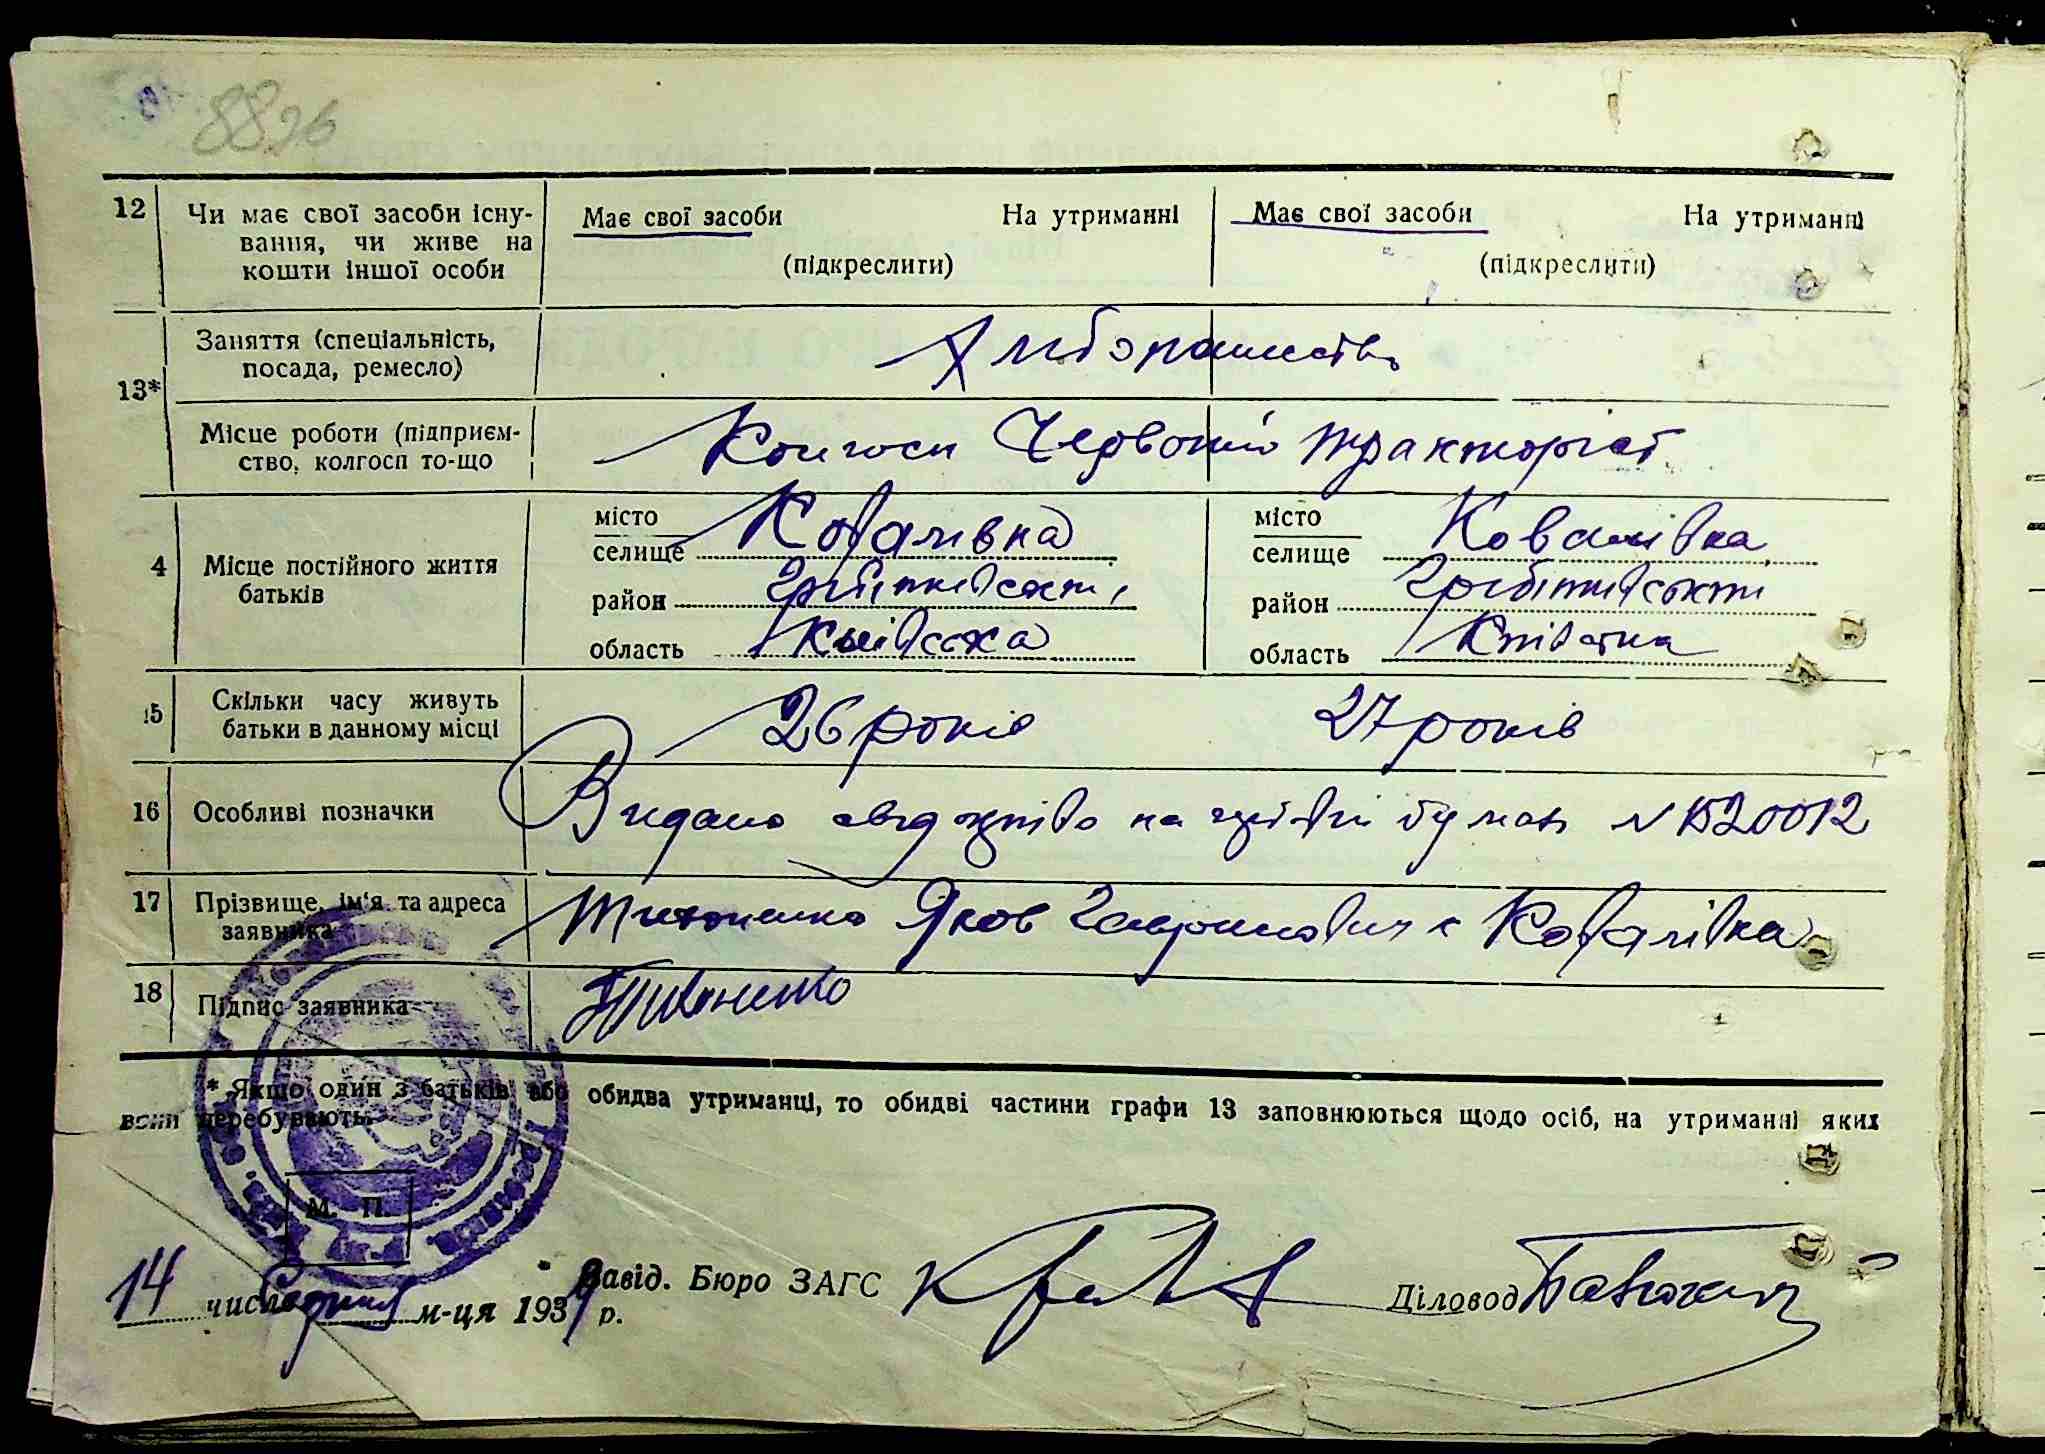 8826
12 Чи має свої засоби існу-
вання, чи живе на
кошти іншої особи
Має свої засоби На утриманні
(підкреслити)
Має свої засоби На утриманні
(підкреслити)
13* Заняття (спеціальність,
посада, ремесло)
Хліборобство
Місце роботи (підприєм-
ство, колгосп то-що
Колгосп Червоний тракторіст
4 Місце постійного життя
батьків
місто
селище Ковалівка
район Гребінківський
область Київська
місто
селище Ковалівка
район Гребінківський
область Київська
15 Скільки часу живуть
батьки в данному місці
26 років 27 років
16 Особливі позначки
Видано свідоцтво на гербовій бумазі № 1520012
17 Прізвище, ім'я та адреса
заявника
Тихоненко Яков Гаврилович с Ковалівка
18 Підпис заявника
Тихоненко
* Якщо один з батьків або обидва утриманці, то обидві частини графи 13 заповнюються щодо осіб, на утриманні яких
вони перебувають.
М. П.
14 числа Серпня м-ця 1939 р.
Завід. Бюро ЗАГС
Діловод